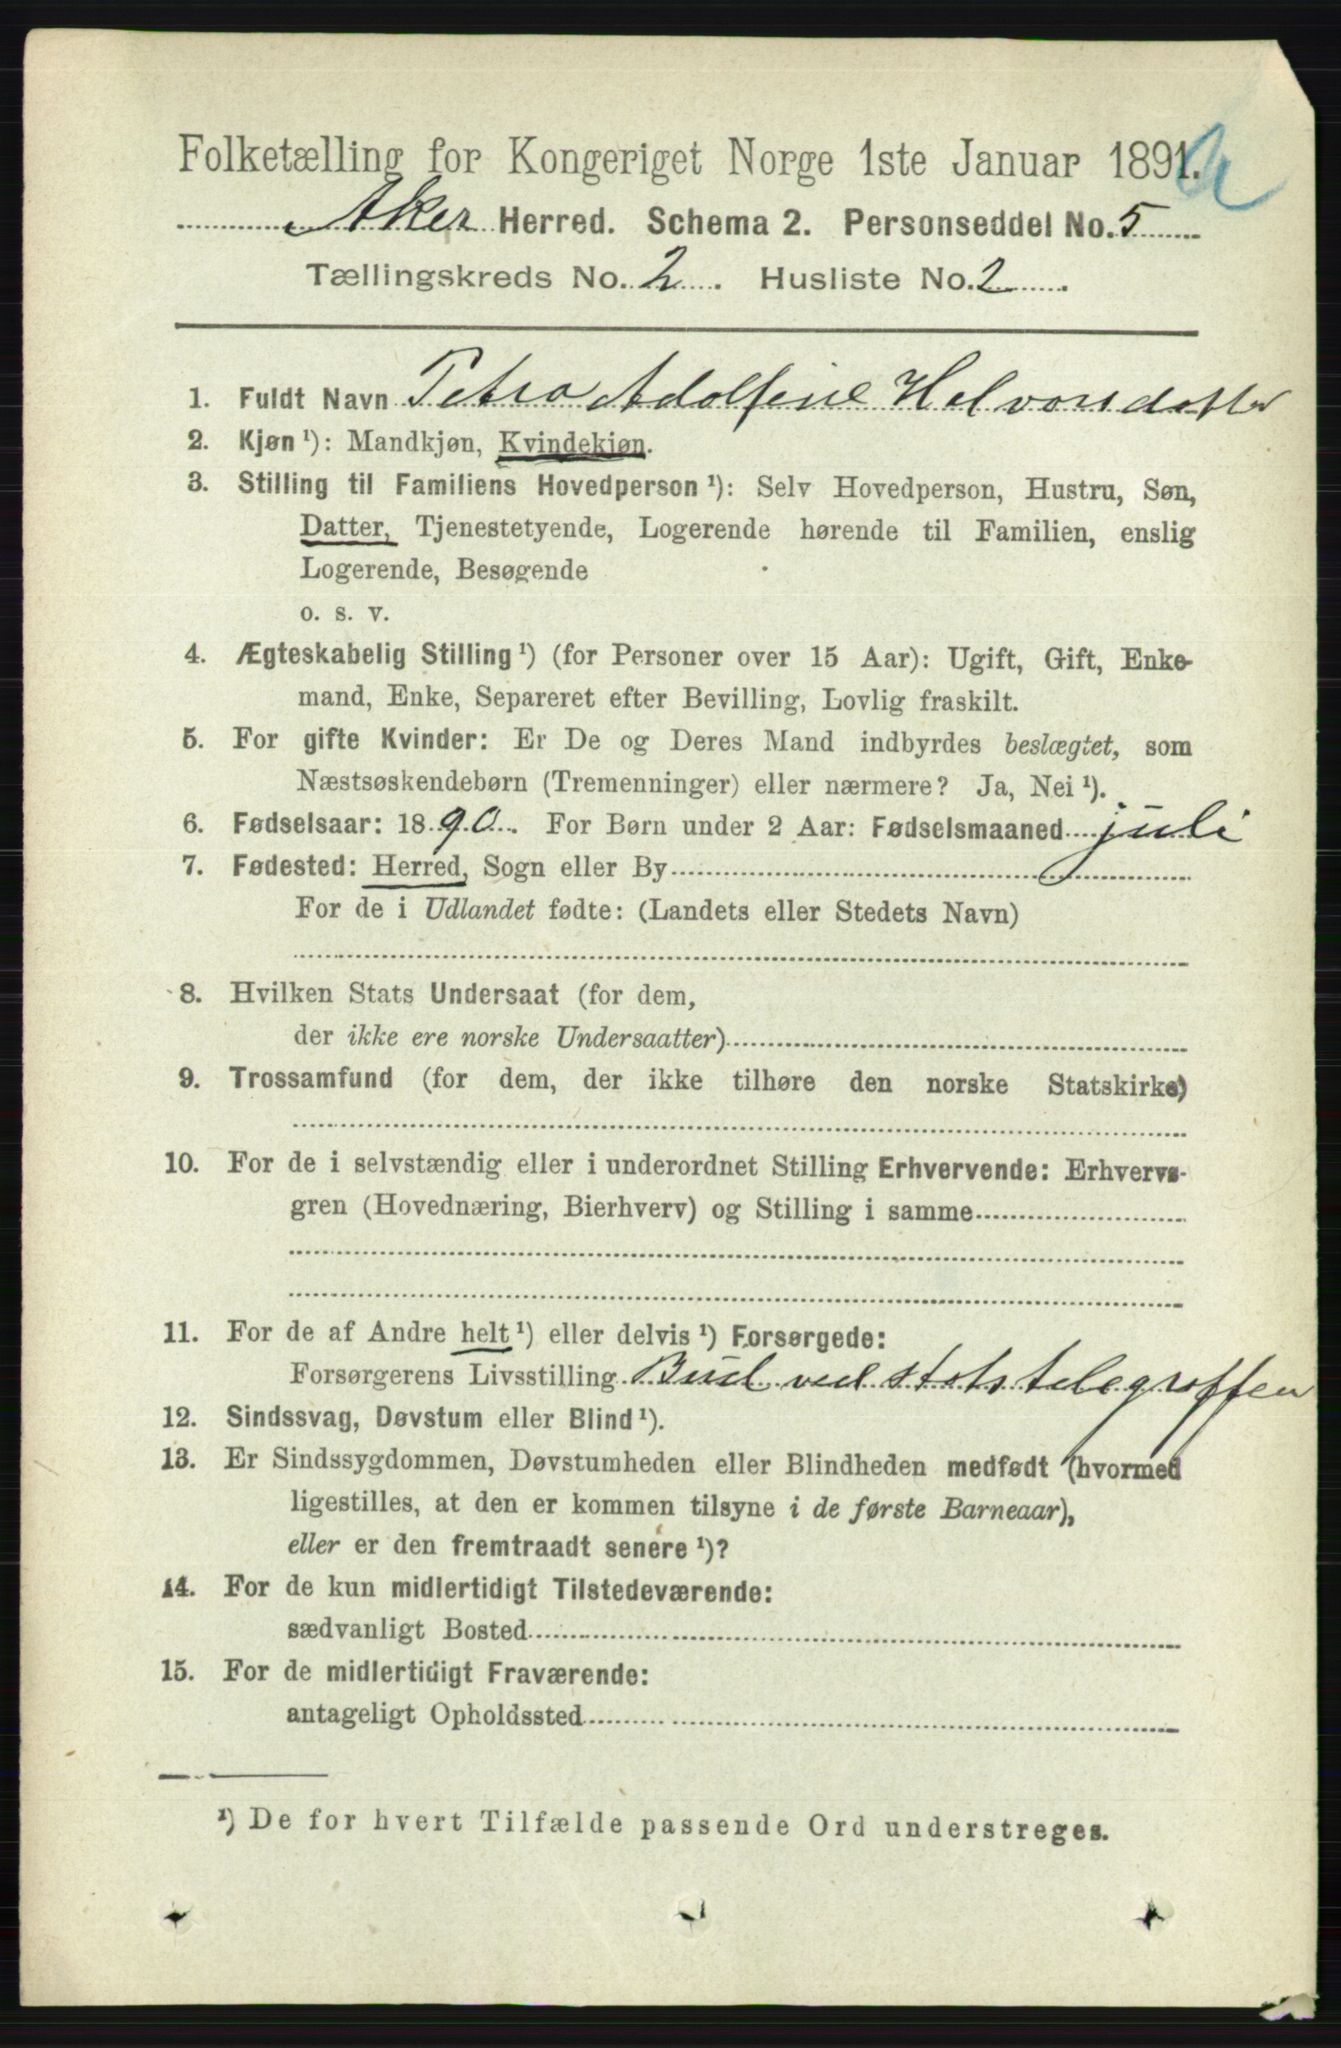 Folketælling for Kongeriget Norge 1ste Januar 1891.
Aker Herred. Schema 2. Personseddel No. 5
Tællingskreds No. 2. Husliste No. 2.
1. Fuldt Navn Petra Adolfine Halvorsdatter
2. Kjøn ¹): Mandkjøn, Kvindekjøn.
3. Stilling til Familiens Hovedperson ¹): Selv Hovedperson, Hustru, Søn,
Datter, Tjenestetyende, Logerende hørende til Familien, enslig
Logerende, Besøgende
o. s. v.
4. Ægteskabelig Stilling ¹) (for Personer over 15 Aar): Ugift, Gift, Enke-
mand, Enke, Separeret efter Bevilling, Lovlig fraskilt.
5. For gifte Kvinder: Er De og Deres Mand indbyrdes beslægtet, som
Næstsøskendebørn (Tremenninger) eller nærmere? Ja, Nei ¹).
6. Fødselsaar: 1890. For Børn under 2 Aar: Fødselsmaaned juli
7. Fødested: Herred, Sogn eller By
For de i Udlandet fødte: (Landets eller Stedets Navn)
8. Hvilken Stats Undersaat (for dem,
der ikke ere norske Undersaatter)
9. Trossamfund (for dem, der ikke tilhøre den norske Statskirke)
10. For de i selvstændig eller i underordnet Stilling Erhvervende: Erhvervs-
gren (Hovednæring, Bierhverv) og Stilling i samme
11. For de af Andre helt ¹) eller delvis ¹) Forsørgede:
Forsørgerens Livsstilling Bud ved statstelegraffen
12. Sindssvag, Døvstum eller Blind ¹).
13. Er Sindssygdommen, Døvstumheden eller Blindheden medfødt (hvormed
ligestilles, at den er kommen tilsyne i de første Barneaar),
eller er den fremtraadt senere ¹)?
14. For de kun midlertidigt Tilstedeværende:
sædvanligt Bosted
15. For de midlertidigt Fraværende:
antageligt Opholdssted
¹) De for hvert Tilfælde passende Ord understreges.